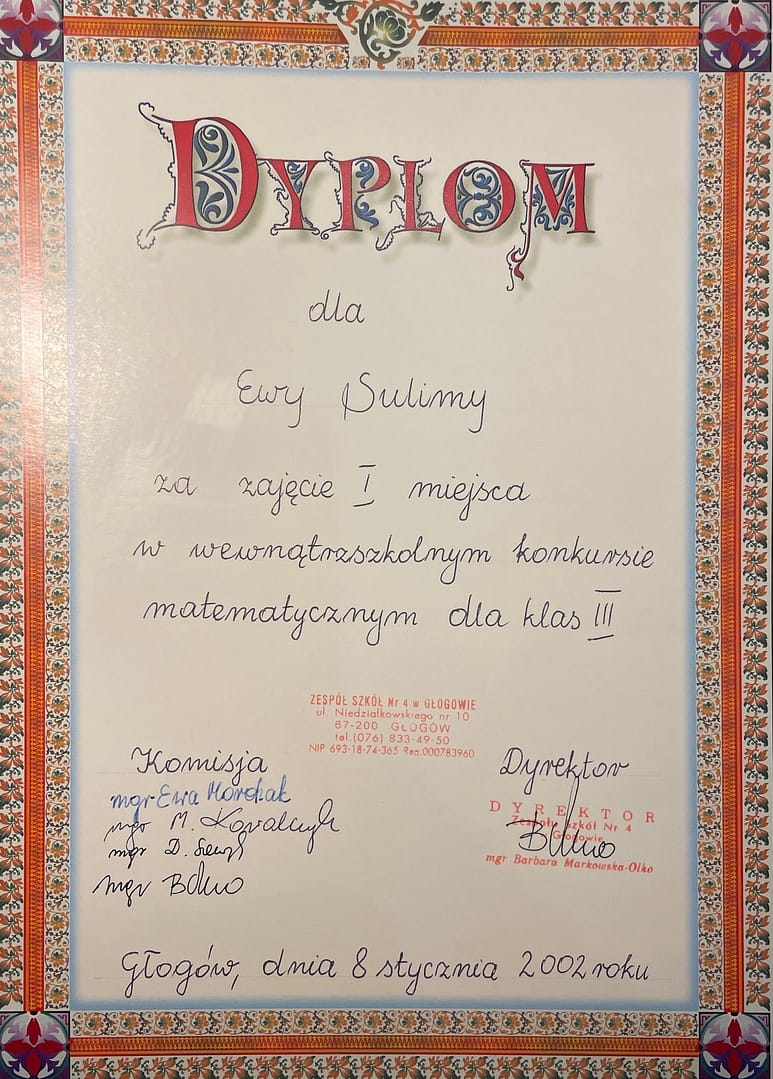 DYPLOM
dla
Ewy Sulimy
za zajęcie I miejsca
w wewnątrzszkolnym konkursie
matematycznym dla klas III
ZESPÓŁ SZKÓŁ Nr 4 w GŁOGOWIE
ul. Niedziałkowskiego nr 10
67-200 GŁOGÓW
tel.(076) 833-49-50
NIP 693-18-74-365 Reg.000783960
Komisja
mgr Ewa
mgr M. Kowalczyk
mgr D.
mgr BOlko
Dyrektor
DYREKTOR
Zespołu Szkół Nr 4
w Głogowie
BOlko
mgr Barbara Markowska-Olko
Głogów, dnia 8 stycznia 2002 roku